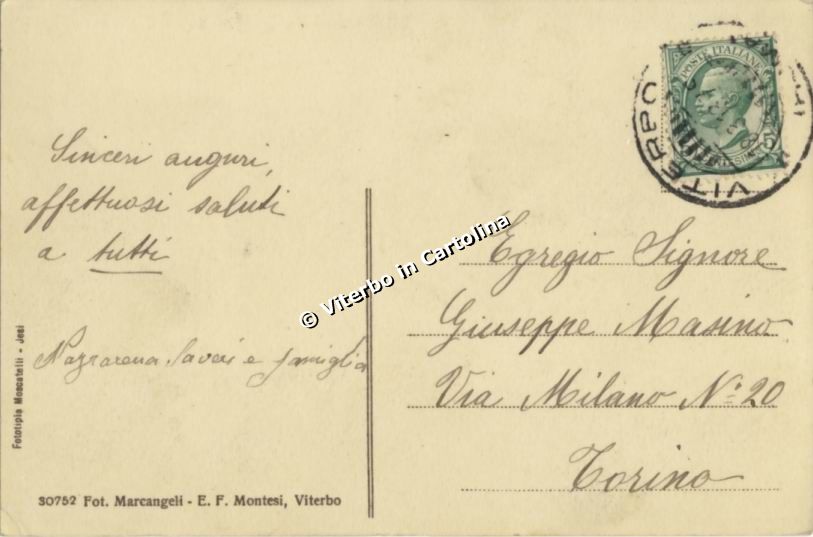 Sinceri auguri,
affettuosi saluti
a tutti
Nazzarena, e famiglia
Fototipia Moscatelli - Jesi
30752 Fot. Marcangeli - E. F. Montesi, Viterbo
© Viterbo in Cartolina
POSTE ITALIANE
VITERBO
Egregio Signore
Giuseppe Masino
Via Milano No 20
Torino